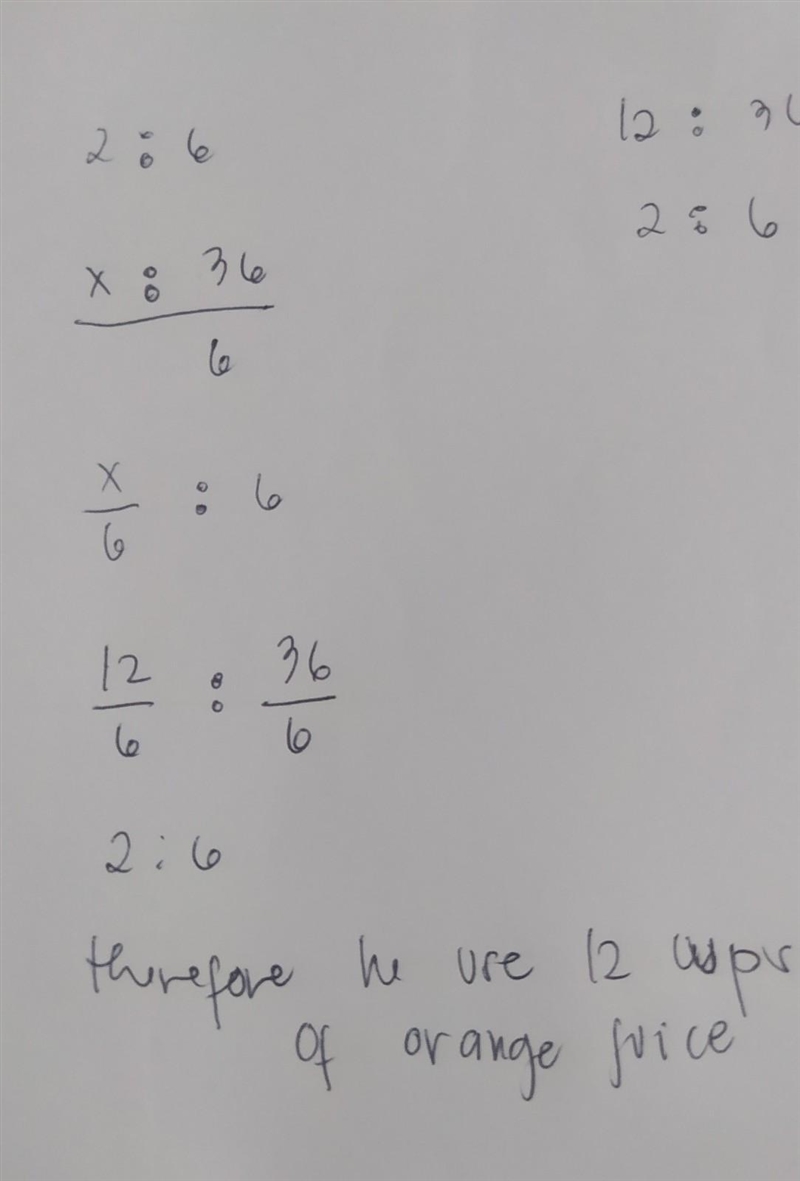 2 : 6
x : 36
6
x
6
: 6
12
6
:
36
6
2 : 6
therefore he use 12
of orange juice
12 :
2 : 6